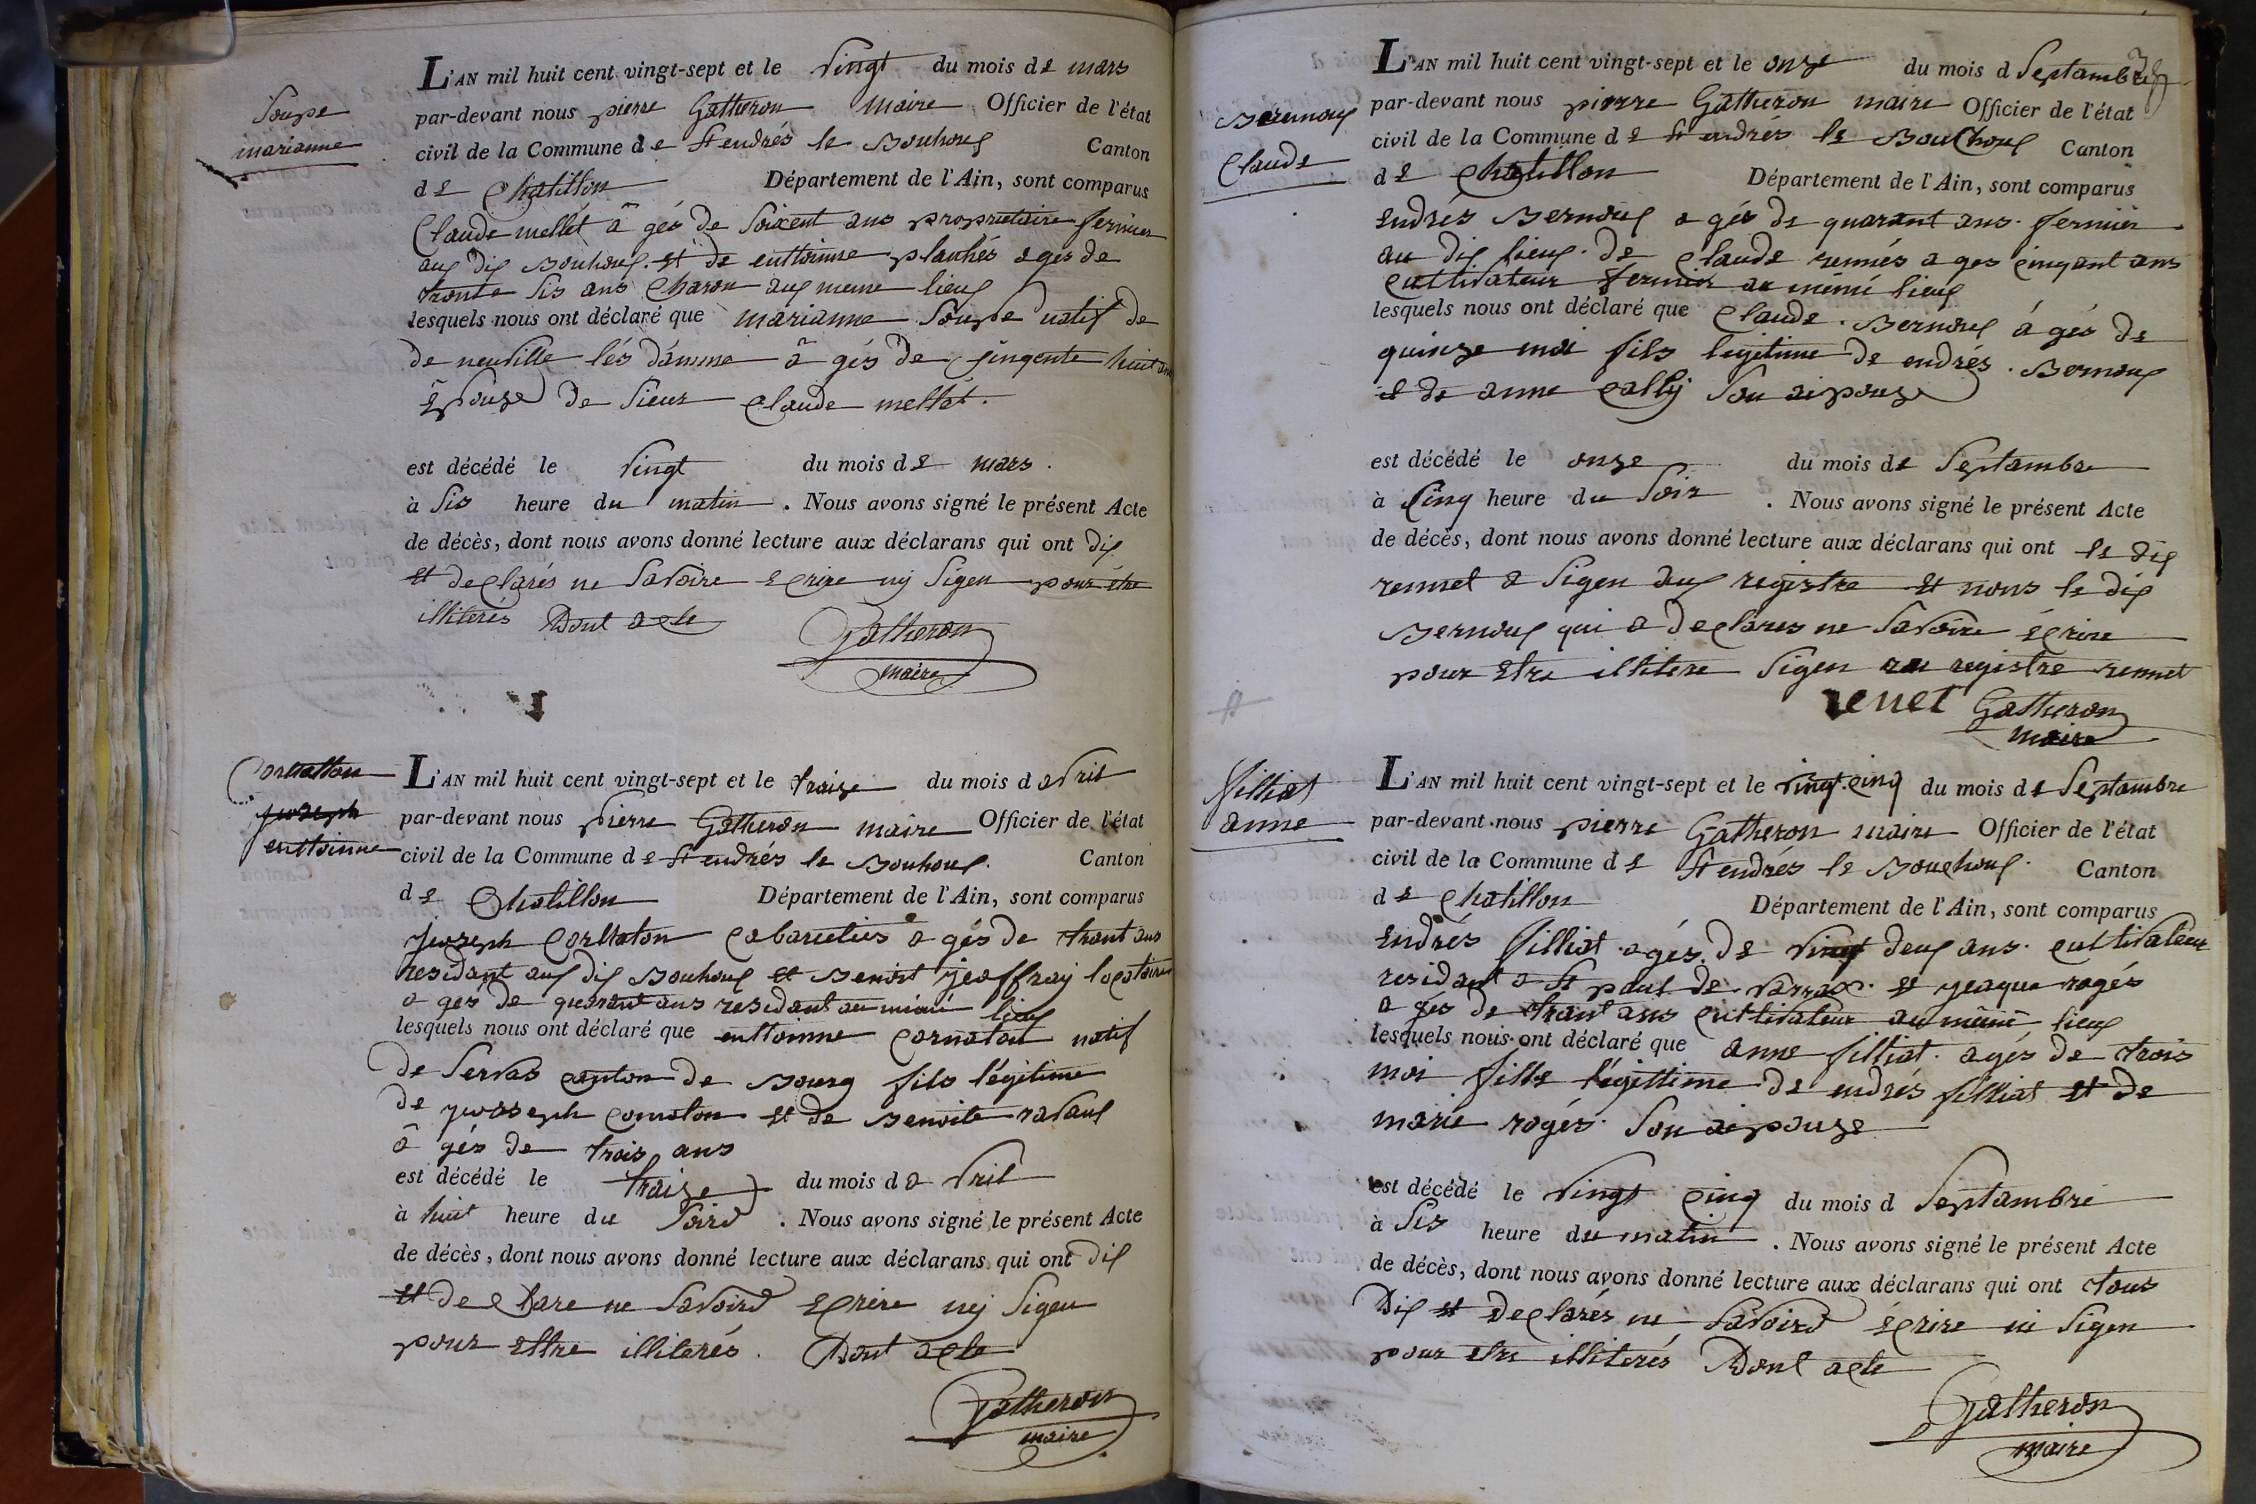 Soupe
marianne
L'AN mil huit cent vingt-sept et le vingt du mois de mars
par-devant nous pierre Gatheron maire Officier de l'état
civil de la Commune de St endrés le Bouhoux Canton
de Chatillon Département de l'Ain, sont comparus
Claude mellét â gés de soixent ans propriétaire fermier
aux dix Bouhoux et de enttoinne planhés agés de
tronte sis ans charon aux meme lieux
lesquels nous ont déclaré que marianne Soupe natif de
de neuville lés damme â gés de sinqente huit ans
Epouse de sieur Claude mellét.
est décédé le vingt du mois de mars.
à sis heure du matin. Nous avons signé le présent Acte
de décès, dont nous avons donné lecture aux déclarans qui ont dix
et declarés ne savoire ecrire ny sigen pour étre
illiterés Dont acte
Gatheron
maire
Cornatton
Jwoseph
enttoinne
L'AN mil huit cent vingt-sept et le traize du mois d avril
par-devant nous pierre Gatheron maire Officier de l'état
civil de la Commune de St endrés le Bouhoux. Canton
de Chatillon Département de l'Ain, sont comparus
Jwoseph Cornaton cabaretiés a gés de tront ans
residant aux dix Bouhoux et Benoit jeoffray locataire
a gés de quarant ans residant au mémé lieux
lesquels nous ont déclaré que enttoinne Cornaton natif
de servas canton de Bourg fils légitime
de jwosseph cornaton et de Benoite ravaux
â gés de trois ans
est décédé le traize du mois d avril
à huit heure du soird. Nous avons signé le présent Acte
de décès, dont nous avons donné lecture aux déclarans qui ont dix
et declare ne savoird ecrire ny sigen
pour ettre illiterés. Dont acte
Gatheron
maire
Bernoux
Claude
L'AN mil huit cent vingt-sept et le onze du mois d Septambre
par-devant nous pierre Gatheron maire Officier de l'état
civil de la Commune de St endrés le Bouchoux Canton
de Chatillon Département de l'Ain, sont comparus
Endrés Bernoux a gés de quarant ans. fermier
au dix lieux. de Claude rennés a ges cinqant ans
cultivateur fermier au mémé lieux
lesquels nous ont déclaré que Claude. Bernoux á gés de
quinze moi fils legetime de endrés. Bernoux
et de anne Cally son aipouze
est décédé le onze du mois de Septambre
à Cinq heure du soir. Nous avons signé le présent Acte
de décès, dont nous avons donné lecture aux déclarans qui ont le dix
rennet a sigen aux registre et nous le dix
Bernoux qui a declares ne savoire écrire
pour etre illitere sigen au registre rennet
renet Gatheron
maire
filliat
anne
L'AN mil huit cent vingt-sept et le vingt cinq du mois de Septambre
par-devant nous pierre Gatheron maire Officier de l'état
civil de la Commune de St endrés le Bouchoux. Canton
de Chatillon Département de l'Ain, sont comparus
Endrés filliat agés de vingt deux ans. cultivateur
residant a St paul de varrax. et jeaque rogés
a gés de trant ans cultivateur au mémé lieux
lesquels nous ont déclaré que anne filliat. agés de trois
moi fille légittime de endrés filliat et de
marie rogés. son aipouze
est décédé le vingt cinq du mois d Septambre
à sis heure du matin. Nous avons signé le présent Acte
de décès, dont nous avons donné lecture aux déclarans qui ont tous
dix et declarés ne savoird écrire ni sigen
pour etre illiterés Dont acte
Gatheron
maire